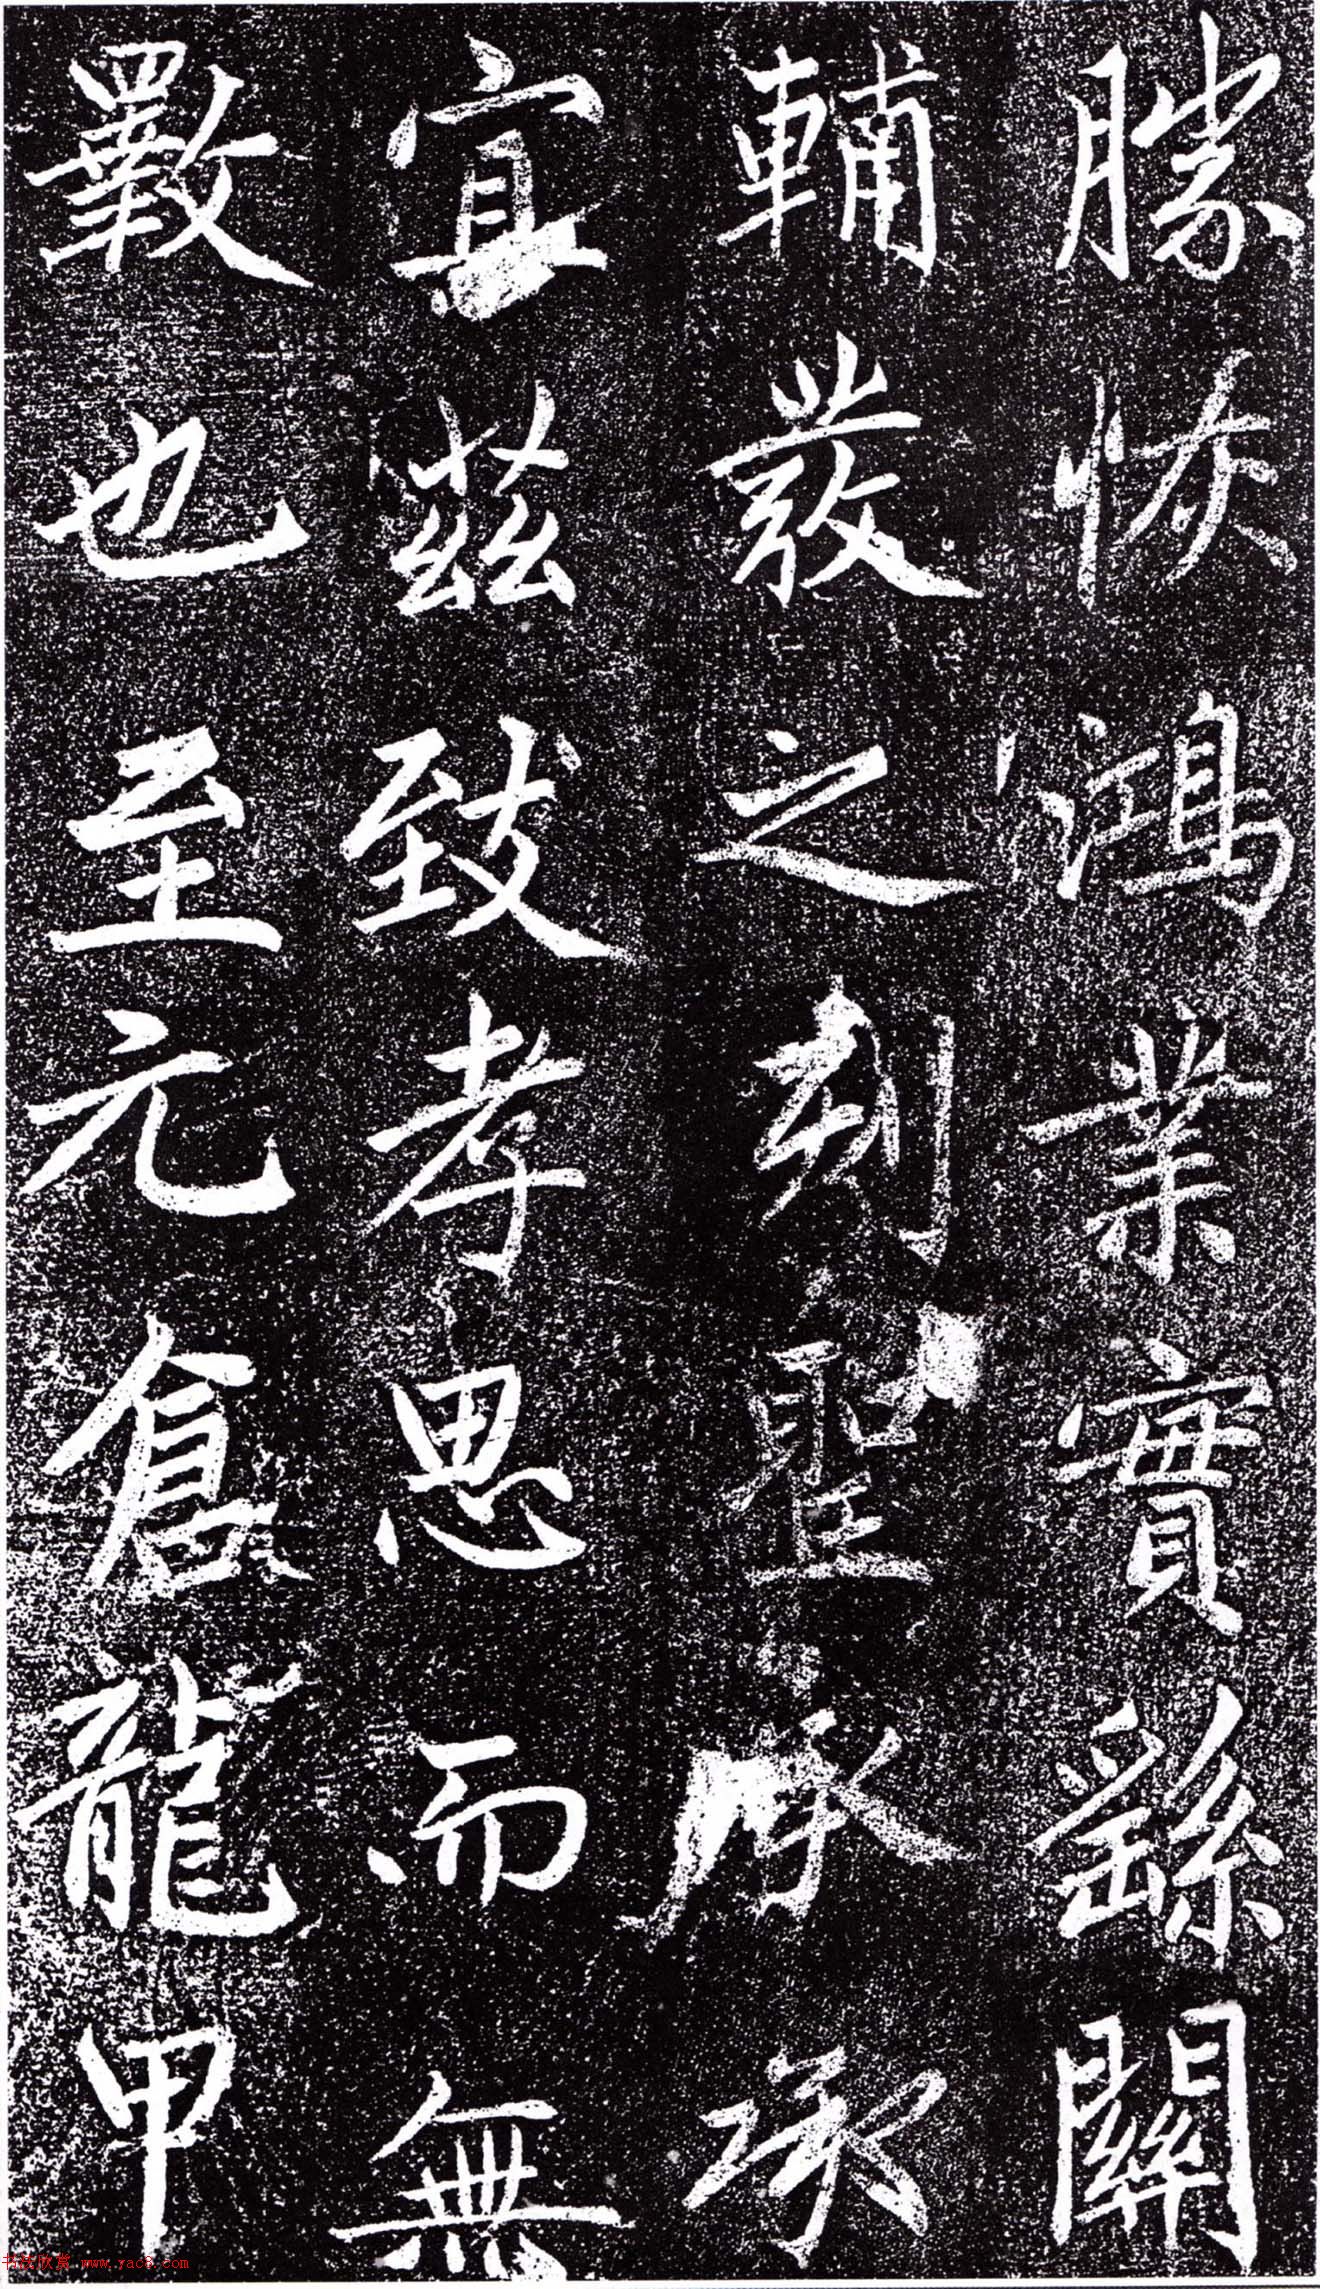 勝恢鴻業實繇關
輔發之列聖承承
宜茲致孝思而無
斁也至元倉龍甲
书法欣赏 www.yac8.com